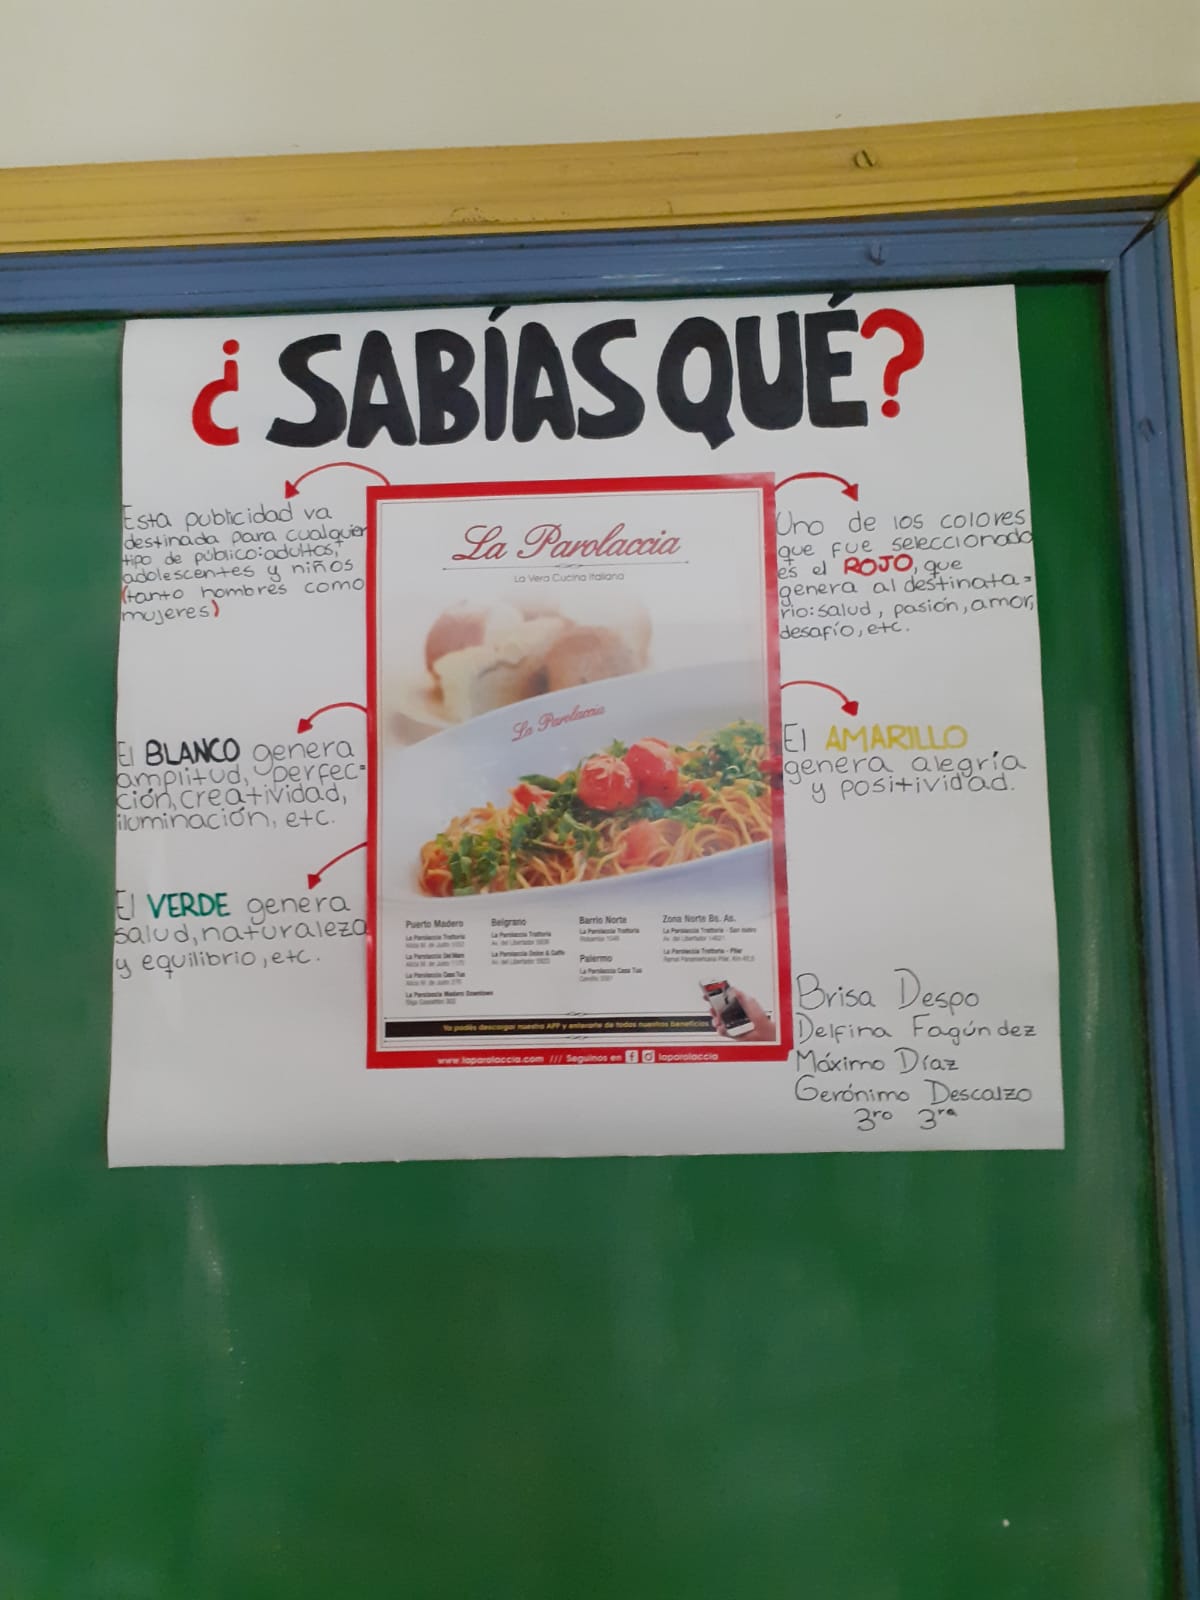 ¿SABÍAS QUÉ?
Esta publicidad va
destinada para cualquier
tipo de público: adultos,
adolescentes y niños
(tanto hombres como
mujeres)
El BLANCO genera
amplitud, perfec=
ción, creatividad,
iluminación, etc.
El VERDE genera
salud, naturaleza
y equilibrio, etc.
La Parolaccia
La Vera Cucina Italiana
La Parolaccia
Puerto Madero
La Parolaccia Trattoria
La Parolaccia Del Mare
La Parolaccia Casa Tua
La Parolaccia Madero Downtown
Belgrano
La Parolaccia Trattoria
La Parolaccia Dolce & Caffe
Barrio Norte
La Parolaccia Trattoria
Palermo
La Parolaccia Casa Tua
Zona Norte Bs. As.
La Parolaccia Trattoria - San Isidro
La Parolaccia Trattoria - Pilar
Ya podés descargar nuestra APP y enterarte de todos nuestros beneficios
www.laparolaccia.com /// Seguinos en laparolaccia
Uno de los colores
que fue seleccionado
es el ROJO, que
genera al destinata=
rio: salud, pasión, amor,
desafío, etc.
El AMARILLO
genera alegría
y positividad.
Brisa Despo
Delfina Fagúndez
Máximo Díaz
Gerónimo Descalzo
3ro 3ra